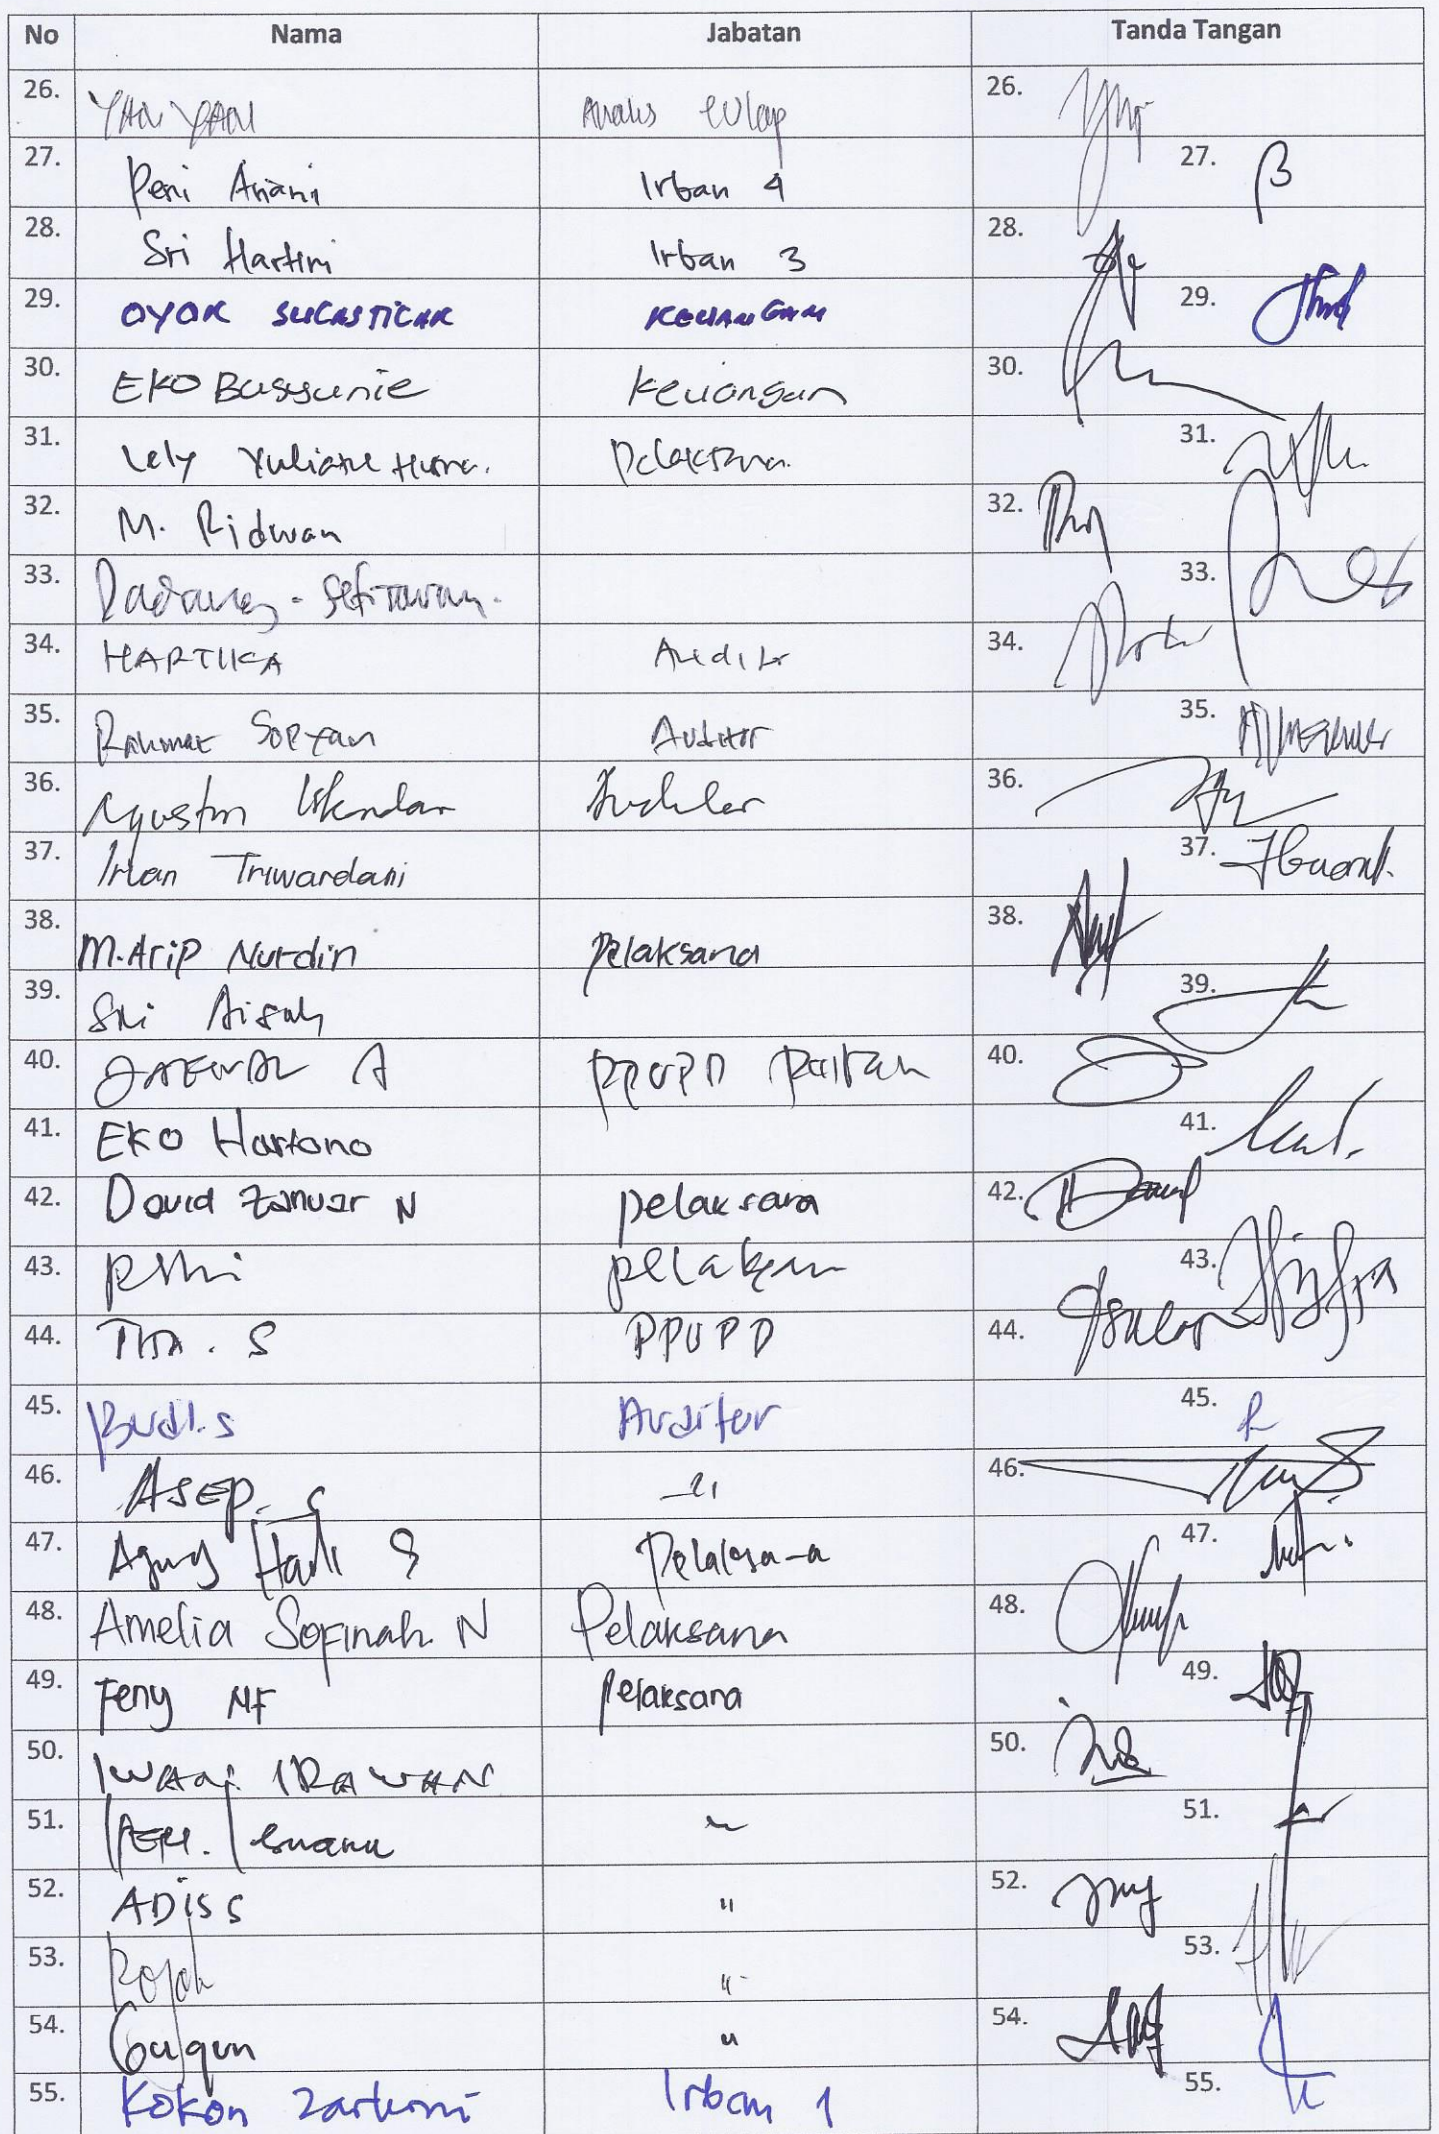 No Nama Jabatan Tanda Tangan
26. YAN YAN Analis evlap 26.
27. Peni Ariani Irban 4 27.
28. Sri Hartini Irban 3 28.
29. OYOK SUKASTICAK KEUANGAN 29.
30. EKO Bussunie Keuangan 30.
31. Lely Yuliane Pelaksana 31.
32. M. Ridwan 32.
33. Dadang - Setiawan. 33.
34. HARTIKA Auditor 34.
35. Rahmat Sopyan Auditor 35.
36. Agustin Iskandar Auditor 36.
37. Intan Triwardani 37.
38. M. Arip Nurdin Pelaksana 38.
39. Sri Aisah 39.
40. A PPUPD 40.
41. EKO Hartono 41.
42. David Zanuar N pelaksana 42.
43. pelaksana 43.
44. S PPUPD 44.
45. Budi. S Auditor 45.
46. ASEP. S 46.
47. Agung Hadi S Pelaksana 47.
48. Amelia Sofinah. N Pelaksana 48.
49. Feny NF pelaksana 49.
50. IWAN IRAWAN 50.
51. 51.
52. ADIS S " 52.
53. Rojak " 53.
54. Gugun " 54.
55. Kokon Zarkoni Irban 1 55.